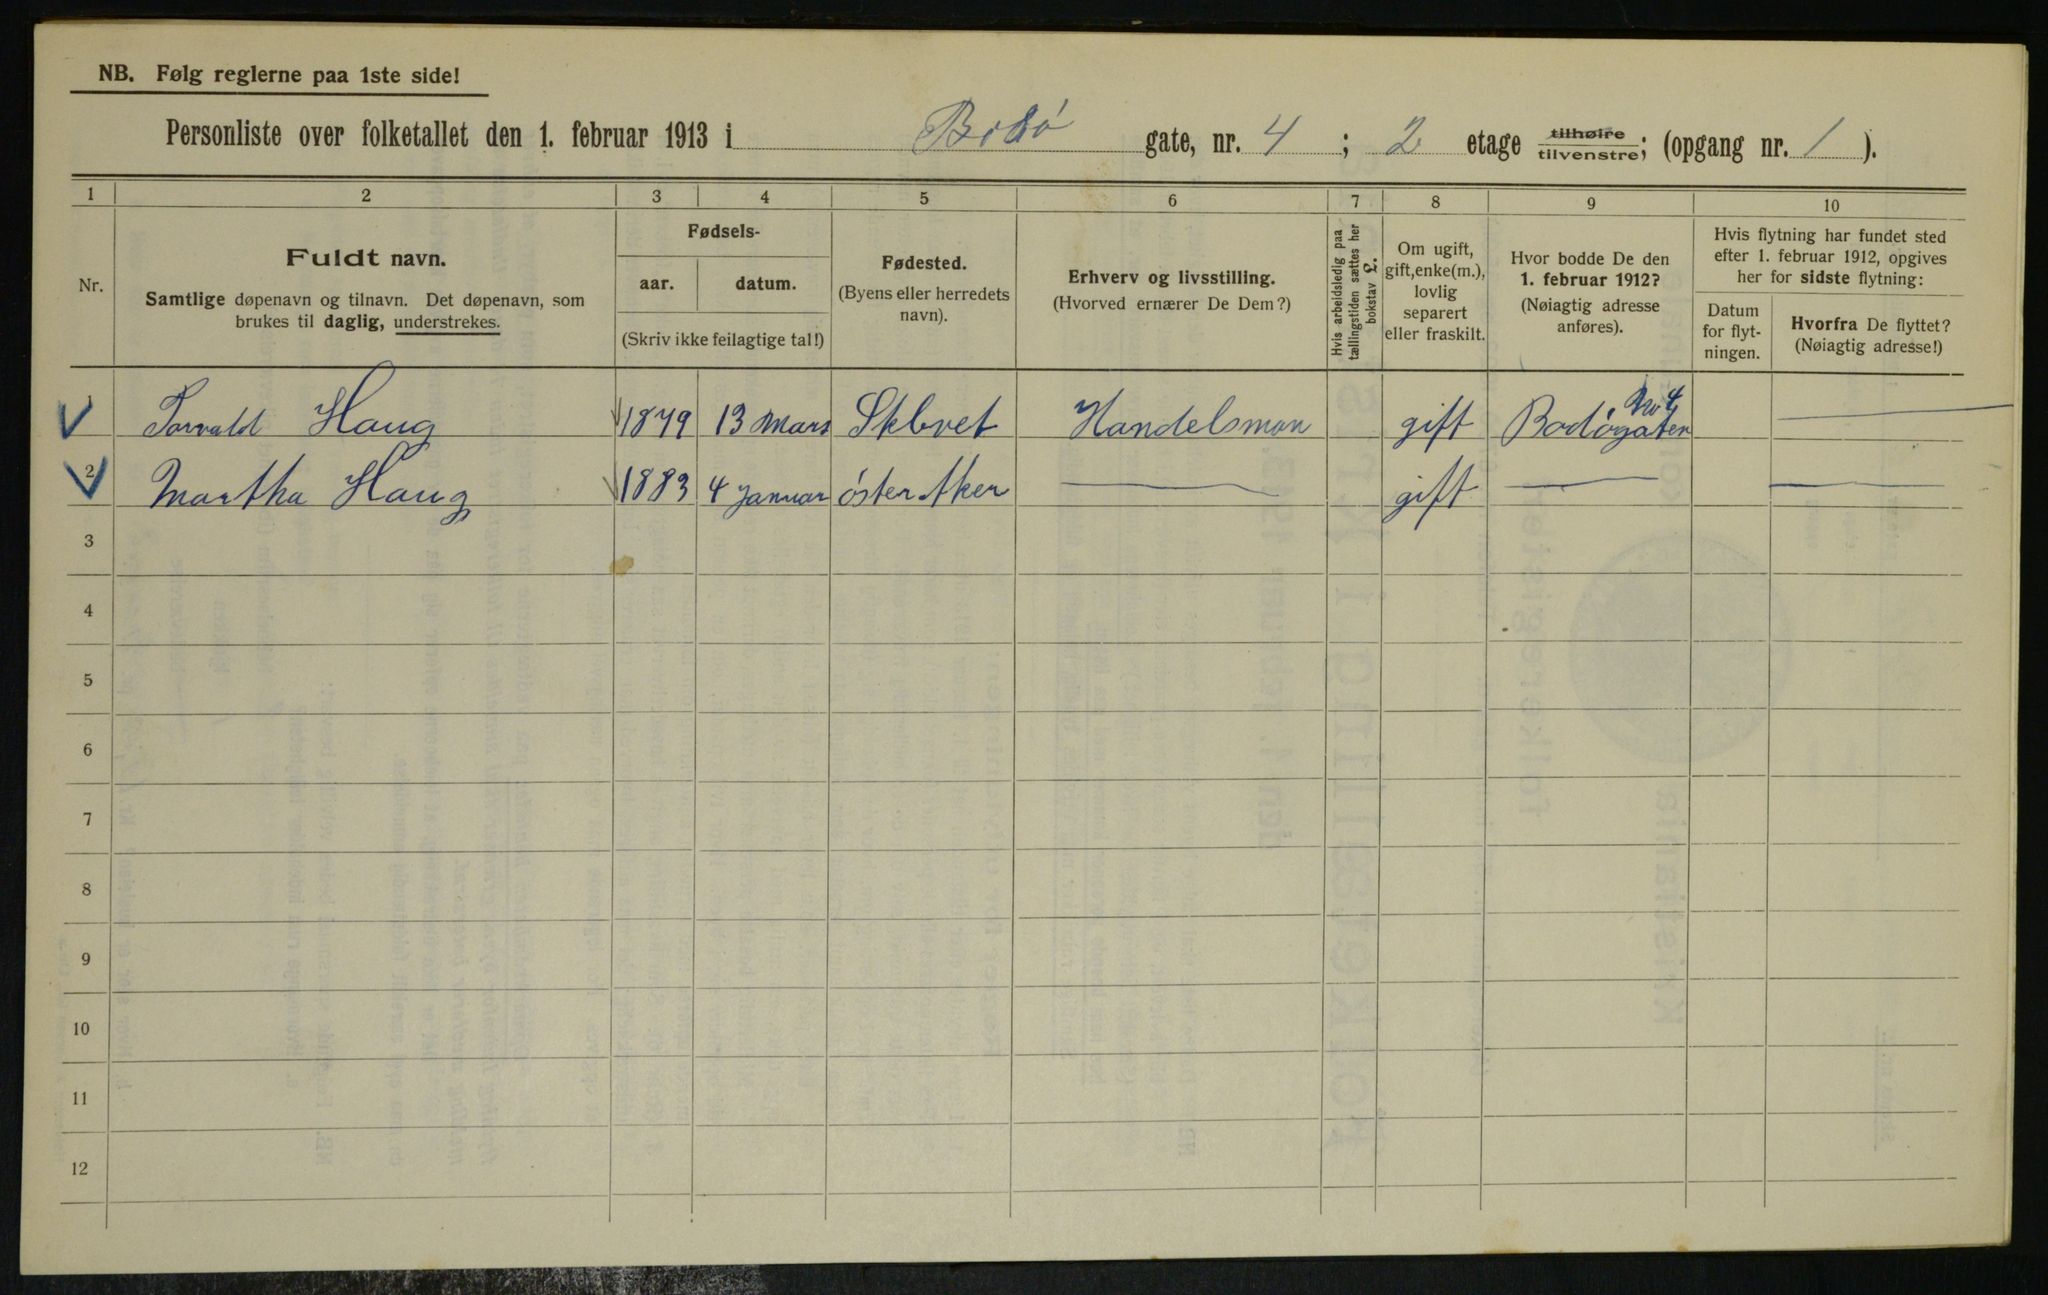 NB. Følg reglerne paa 1ste side!
Personliste over folketallet den 1. februar 1913 i Bodø gate, nr. 4 ; 2 etage tilhøire tilvenstre; (opgang nr. 1 ).
1 2 3 4 5 6 7 8 9 10
Nr.
Fuldt navn.
Samtlige døpenavn og tilnavn. Det døpenavn, som
brukes til daglig, understrekes.
Fødsels-
aar. datum.
(Skriv ikke feilagtige tal!)
Fødested.
(Byens eller herredets
navn).
Erhverv og livsstilling.
(Hvorved ernærer De Dem?)
Hvis arbeidsledig paa
tællingstiden sættes her
bokstav £.
Om ugift,
gift, enke(m.),
lovlig
separert
eller fraskilt.
Hvor bodde De den
1. februar 1912?
(Nøiagtig adresse
anføres).
Hvis flytning har fundet sted
efter 1. februar 1912, opgives
her for sidste flytning:
Datum
for flyt-
ningen.
Hvorfra De flyttet?
(Nøiagtig adresse!)
1 Torvald Haug 1879 13 Mars Handelsman gift Bodøgaten No 4
2 Martha Haug 1883 4 Januar øster Aker gift
3
4
5
6
7
8
9
10
11
12